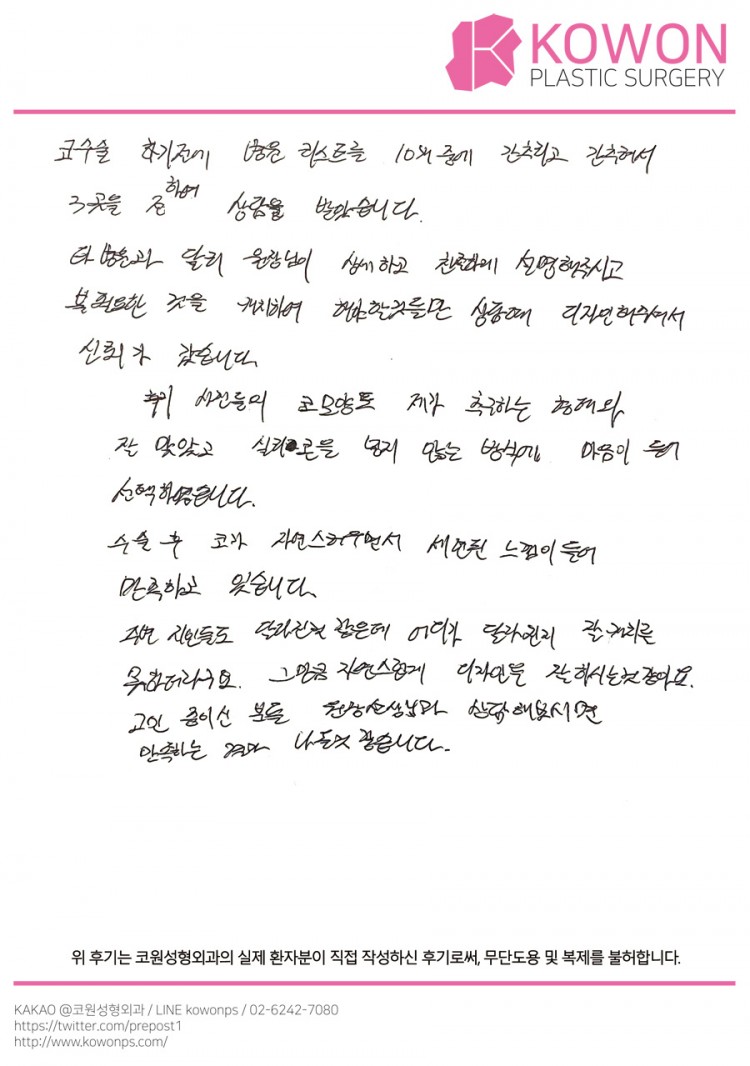 KOWON
PLASTIC SURGERY
코수술 하기전에 병원 리스트를 10개 중에 간추리고 간추려서
3곳을 정하여 상담을 받았습니다.
타 병원과 달리 원장님이 상세하고 친절하게 설명해주시고
불필요한 것을 캐치하여 해야할것들만 상담때 디자인해주셔서
신뢰가 갔습니다.
후기 사진들의 코모양도 제가 추구하는 형태와
잘 맞았고 실리콘을 넣지 않는 방식에 마음이 들어
선택하였습니다.
수술 후 코가 자연스러우면서 세련된 느낌이 들어
만족하고 있습니다.
주변 지인들도 달라진것 같은데 어디가 달라진지 잘 캐치를
못하더라구요. 그만큼 자연스럽게 디자인을 잘 하시는것 같아요.
고민 중이신 분들 원장선생님과 상담해보시면
만족하는 결과 나올것 같습니다.
위 후기는 코원성형외과의 실제 환자분이 직접 작성하신 후기로써, 무단도용 및 복제를 불허합니다.
KAKAO @코원성형외과 / LINE kowonps / 02-6242-7080
https://twitter.com/prepost1
http://www.kowonps.com/